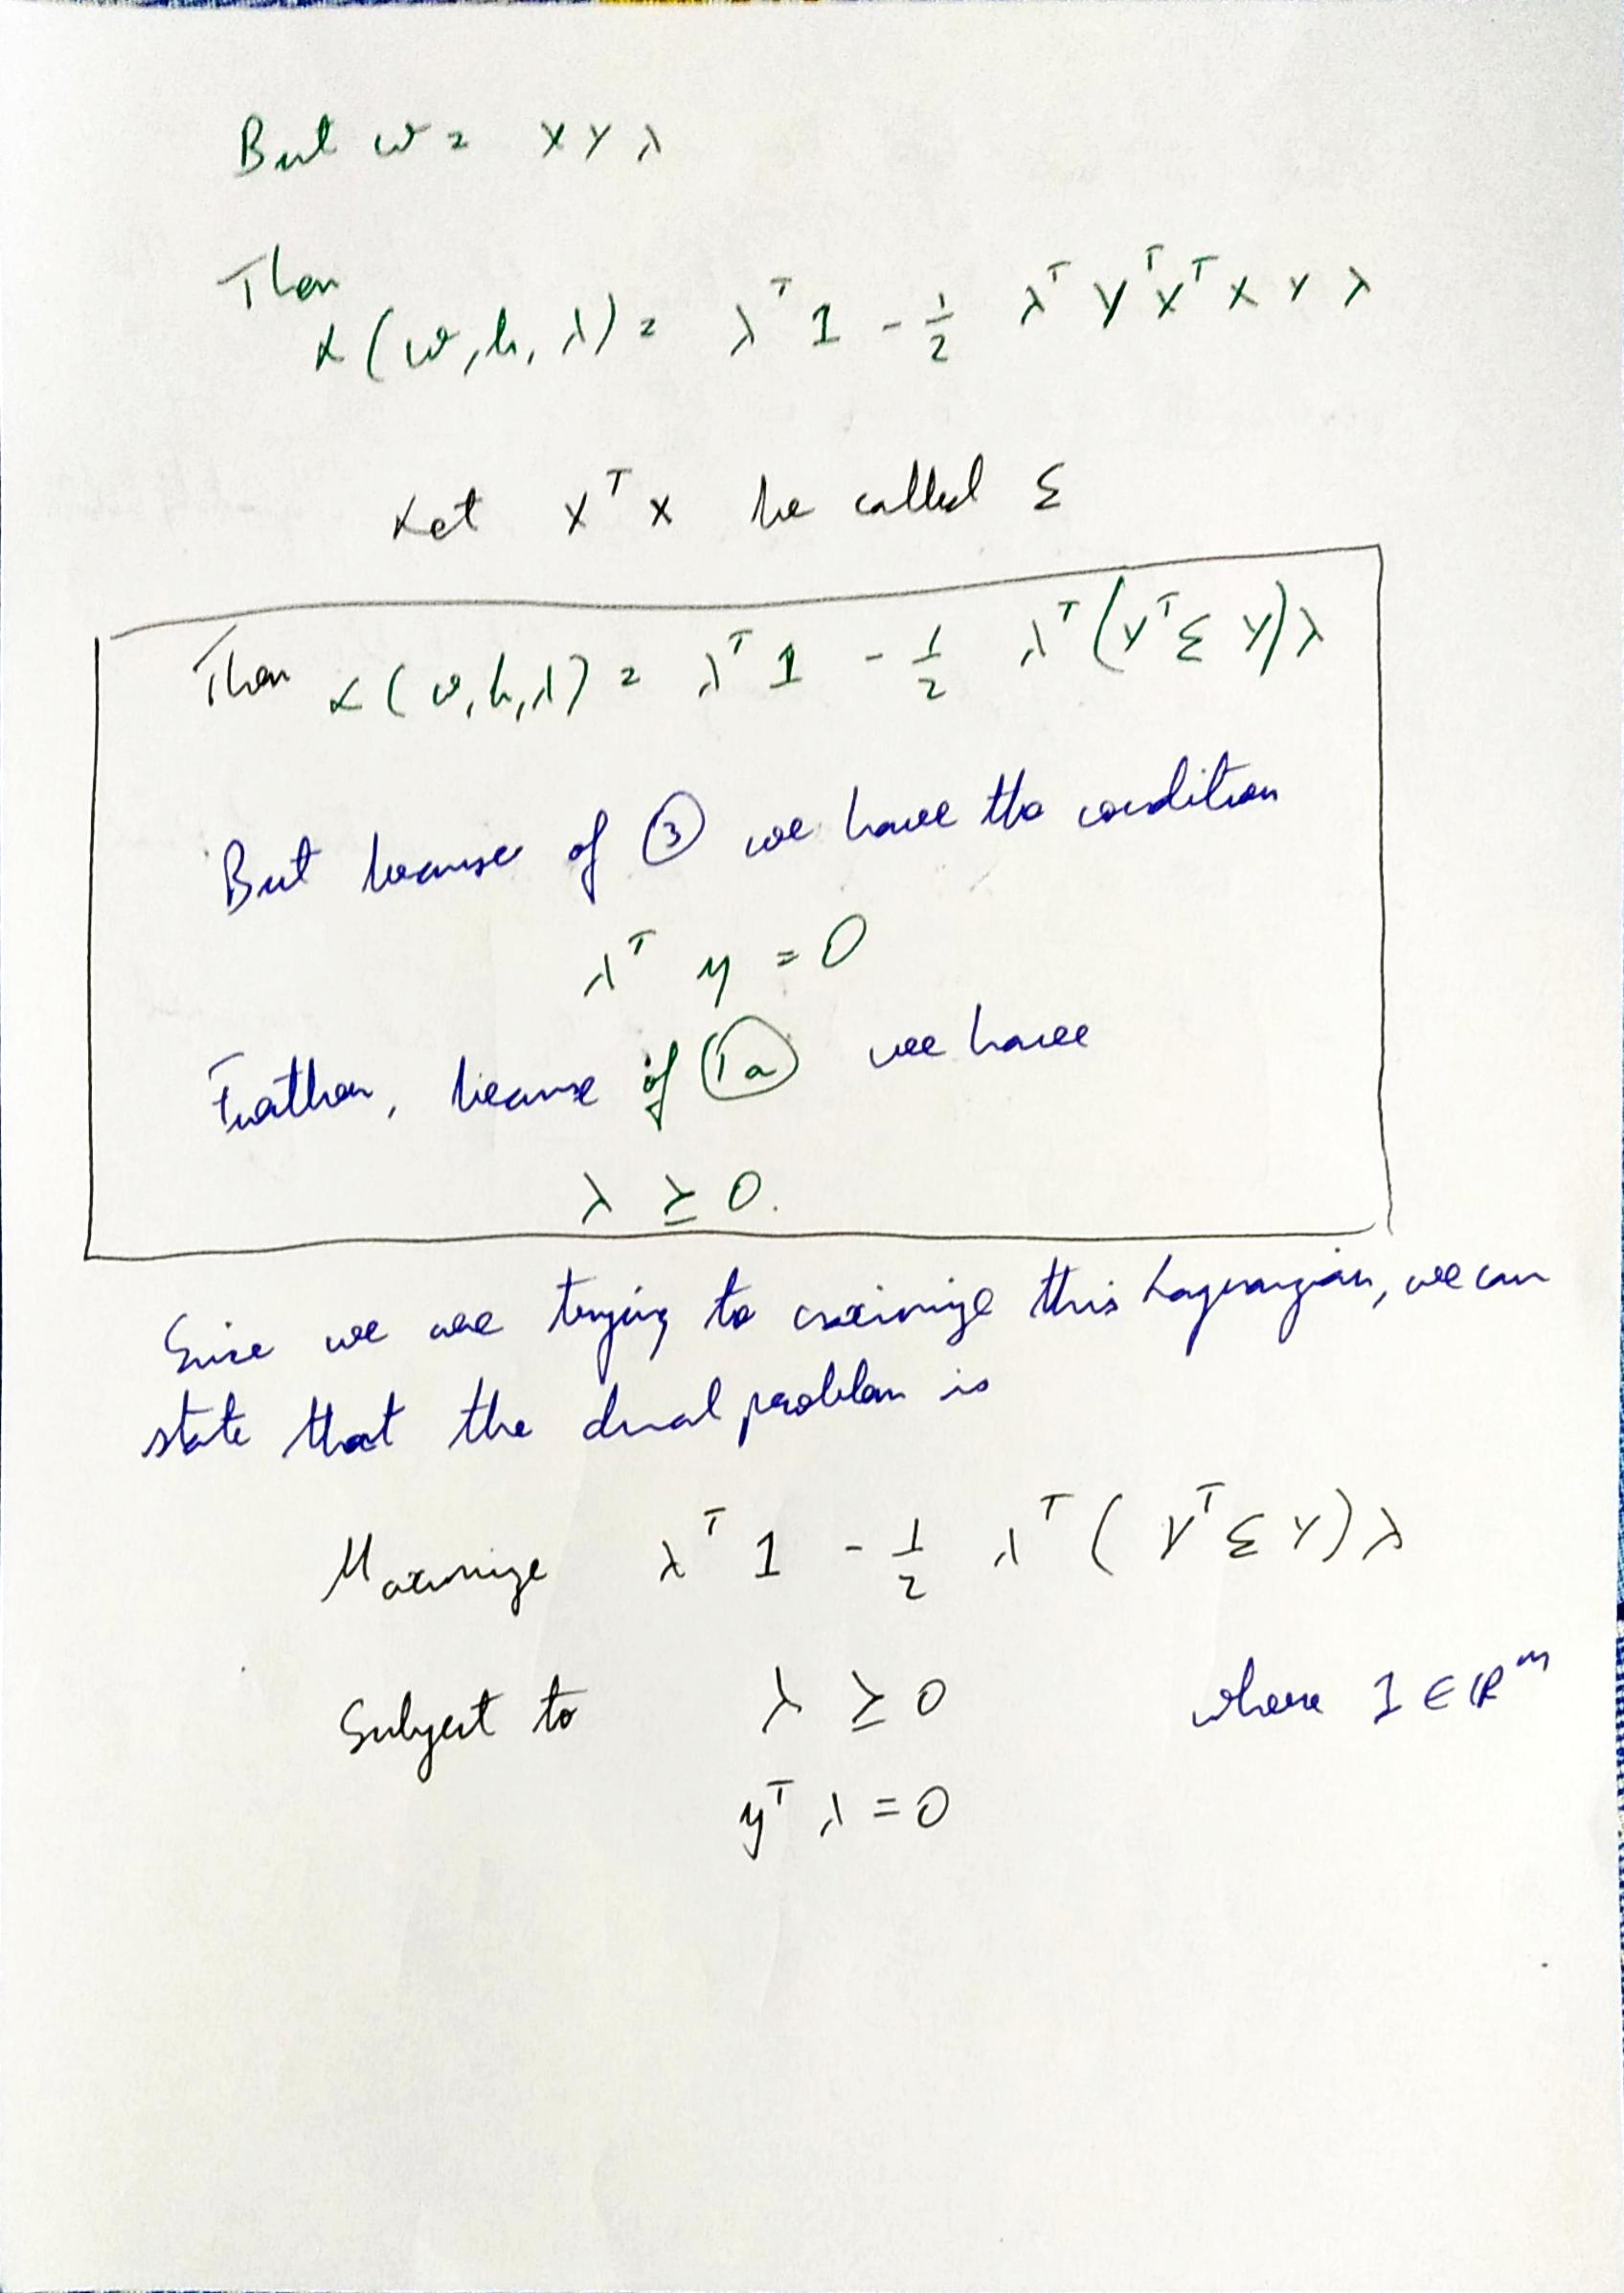 But w = X Y λ
Then
L(w, b, λ) = λᵀ 1 - 1/2 λᵀ Yᵀ Xᵀ X Y λ
Let Xᵀ X be called Σ
Then L(w, b, λ) = λᵀ 1 - 1/2 λᵀ (Yᵀ Σ Y) λ
But because of ③ we have the condition
λᵀ y = 0
Further, because of (1a) we have
λ ≥ 0.
Since we are trying to maximize this Lagrangian, we can
state that the dual problem is
Maximize λᵀ 1 - 1/2 λᵀ (Yᵀ Σ Y) λ
Subject to λ ≥ 0 where 1 ∈ ℝᵐ
yᵀ λ = 0